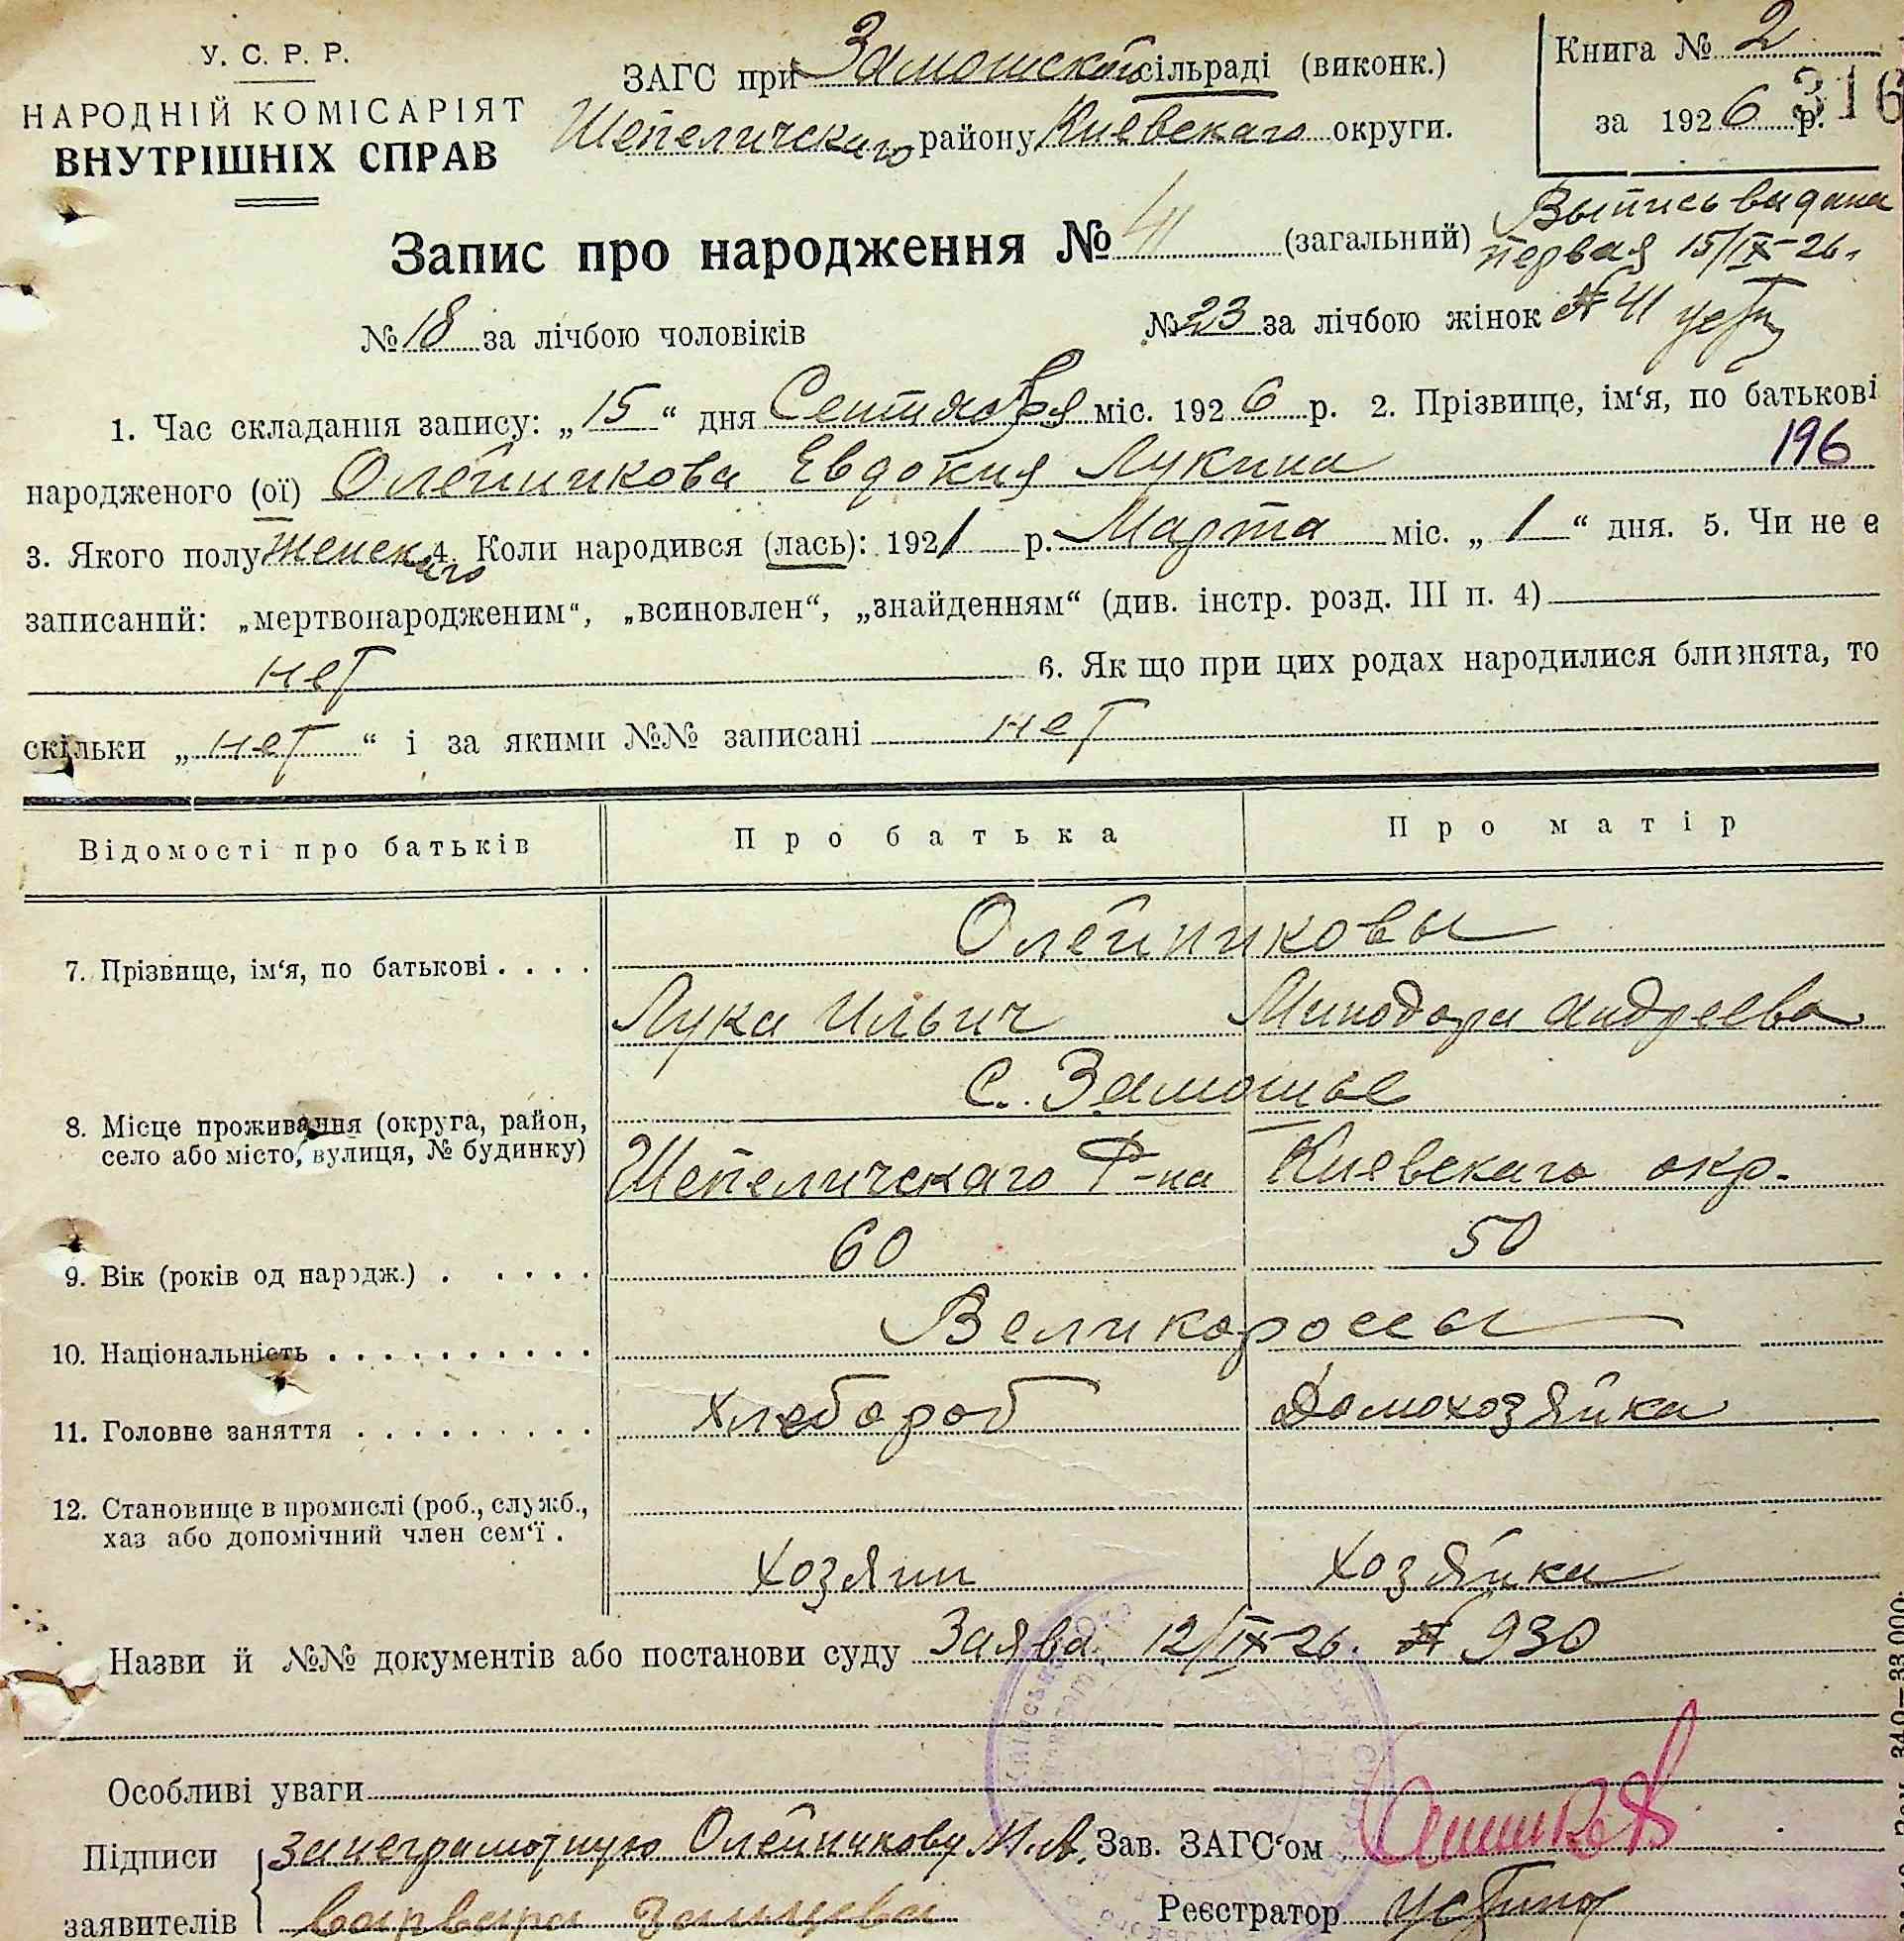 У. С. Р. Р.
НАРОДНІЙ КОМІСАРІЯТ
ВНУТРІШНІХ СПРАВ
ЗАГС при Замошской сільраді (виконк.)
Шепеличскаго району Киевскаго округи.
Книга № 2
за 1926 р. 316
Выпись выдана
первая 15/IX-26.
№ 41
Запис про народження № 41 (загальний)
№ 18 за лічбою чоловіків № 23 за лічбою жінок
1. Час складання запису: „15“ дня Сентября міс. 1926 р. 2. Прізвище, ім‘я, по батькові
196
народженого (ої) Олейникова Евдокия Лукина
3. Якого полу Женскаго 4. Коли народився (лась): 1921 р. Марта міс. „1“ дня. 5. Чи не є
записаний: „мертвонародженим“, „всиновлен“, „знайденням“ (див. інстр. розд. III п. 4)
нет 6. Як що при цих родах народилися близнята, то
скільки „нет“ і за якими №№ записані нет
Відомості про батьків Про батька Про матір
Олейниковы
7. Прізвище, ім‘я, по батькові
Лука Ильич Минодора Андреева
с. Замошье
8. Місце проживання (округа, район,
село або місто, вулиця, № будинку)
Шепеличскаго Р-на Киевскаго окр.
9. Вік (років од народж.) 60 50
10. Національність Великороссы
11. Головне заняття Хлебороб Домохозяйка
12. Становище в промислі (роб., служб.,
хаз або допомічний член сем‘ї.
Хозяин Хозяйка
Назви й №№ документів або постанови суду Заява 12/IX-26. № 930
Особливі уваги
Підписи
заявителів
за неграмотную Олейникову М. А.
Варвара Зайцева
Зав. ЗАГС‘ом
Реєстратор